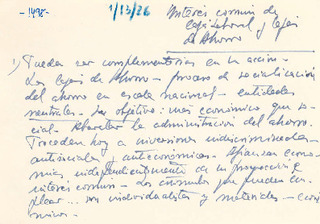 -1498-
1/13/26
Interés común de
Capi laboral y Cajas
de Ahorro
1) Pueden ser complementarias en la acción.
Las Cajas de Ahorro - proceso de socialización
del ahorro en escala nacional - entidades
neutrales. Su objetivo: más económico que so-
cial. Abaratar la administración del ahorro.
Proceden hoy a inversiones indiscriminadas -
antisociales y antieconómicas. Afianzan econo-
mías, independientemente de su proyección e
interés común. Las consultas que pueden em-
plear... son individualistas y materiales -